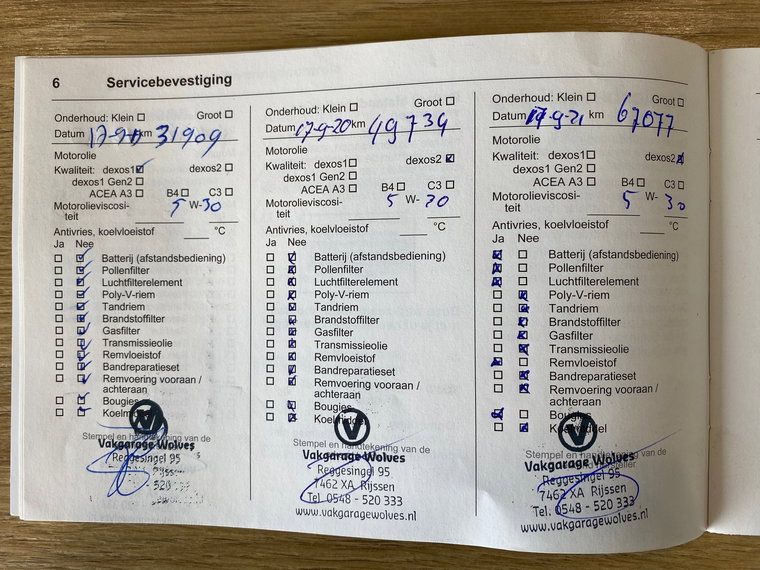 6 Servicebevestiging
Onderhoud: Klein Groot
Datum km 31909
Motorolie
Kwaliteit: dexos1 dexos2
dexos1 Gen2
ACEA A3 B4 C3
Motorolieviscosi-
teit 5 W-30
Antivries, koelvloeistof °C
Ja Nee
Batterij (afstandsbediening)
Pollenfilter
Luchtfilterelement
Poly-V-riem
Tandriem
Brandstoffilter
Gasfilter
Transmissieolie
Remvloeistof
Bandreparatieset
Remvoering vooraan /
achteraan
Bougies
Stempel en handtekening van de
Vakgarage Wolves
Reggesingel 95
Rijssen
520
Onderhoud: Klein Groot
Datum 17-9-20 km 49734
Motorolie
Kwaliteit: dexos1 dexos2
dexos1 Gen2
ACEA A3 B4 C3
Motorolieviscosi-
teit 5 W- 30
Antivries, koelvloeistof °C
Ja Nee
Batterij (afstandsbediening)
Pollenfilter
Luchtfilterelement
Poly-V-riem
Tandriem
Brandstoffilter
Gasfilter
Transmissieolie
Remvloeistof
Bandreparatieset
Remvoering vooraan /
achteraan
Bougies
Koelmiddel
Stempel en handtekening van de
Vakgarage Wolves
Reggesingel 95
7462 XA Rijssen
Tel. 0548 - 520 333
www.vakgaragewolves.nl
Onderhoud: Klein Groot
Datum 17-9-21 km 67077
Motorolie
Kwaliteit: dexos1 dexos2
dexos1 Gen2
ACEA A3 B4 C3
Motorolieviscosi-
teit 5 W- 30
Antivries, koelvloeistof °C
Ja Nee
Batterij (afstandsbediening)
Pollenfilter
Luchtfilterelement
Poly-V-riem
Tandriem
Brandstoffilter
Gasfilter
Transmissieolie
Remvloeistof
Bandreparatieset
Remvoering vooraan /
achteraan
Bougies
Koelmiddel
Stempel en handtekening van de
Vakgarage Wolves
Reggesingel 95
7462 XA Rijssen
Tel. 0548 - 520 333
www.vakgaragewolves.nl